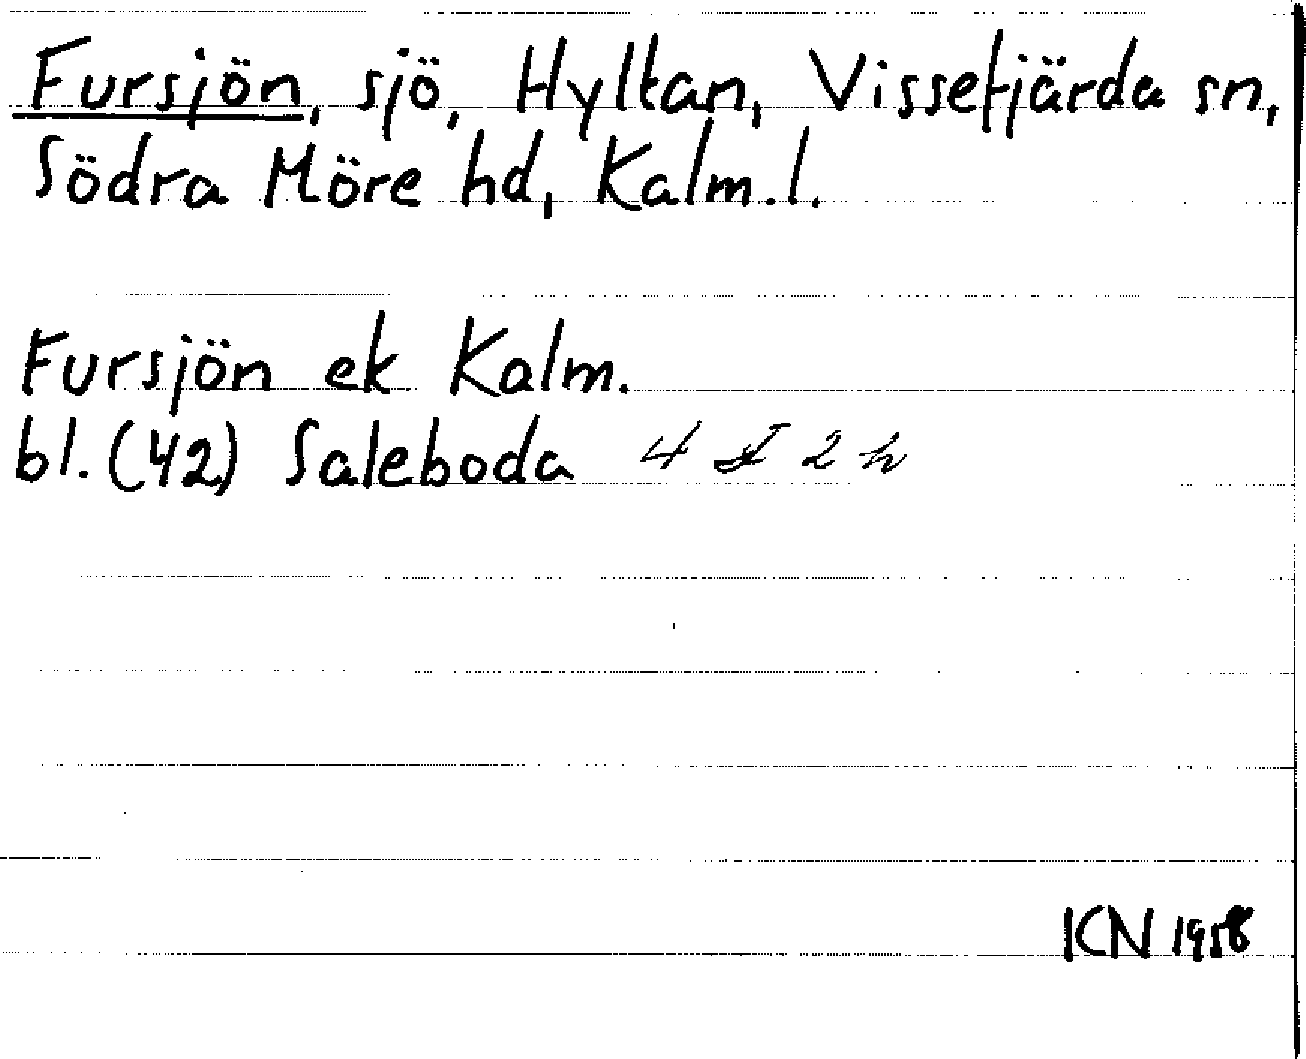 Fursjön, sjö, Hyltan, Vissefjärda sn,
Södra Möre hd, Kalm.l.
Fursjön ek Kalm.
bl. (42) Saleboda 4 I 2 h
ICN 1958